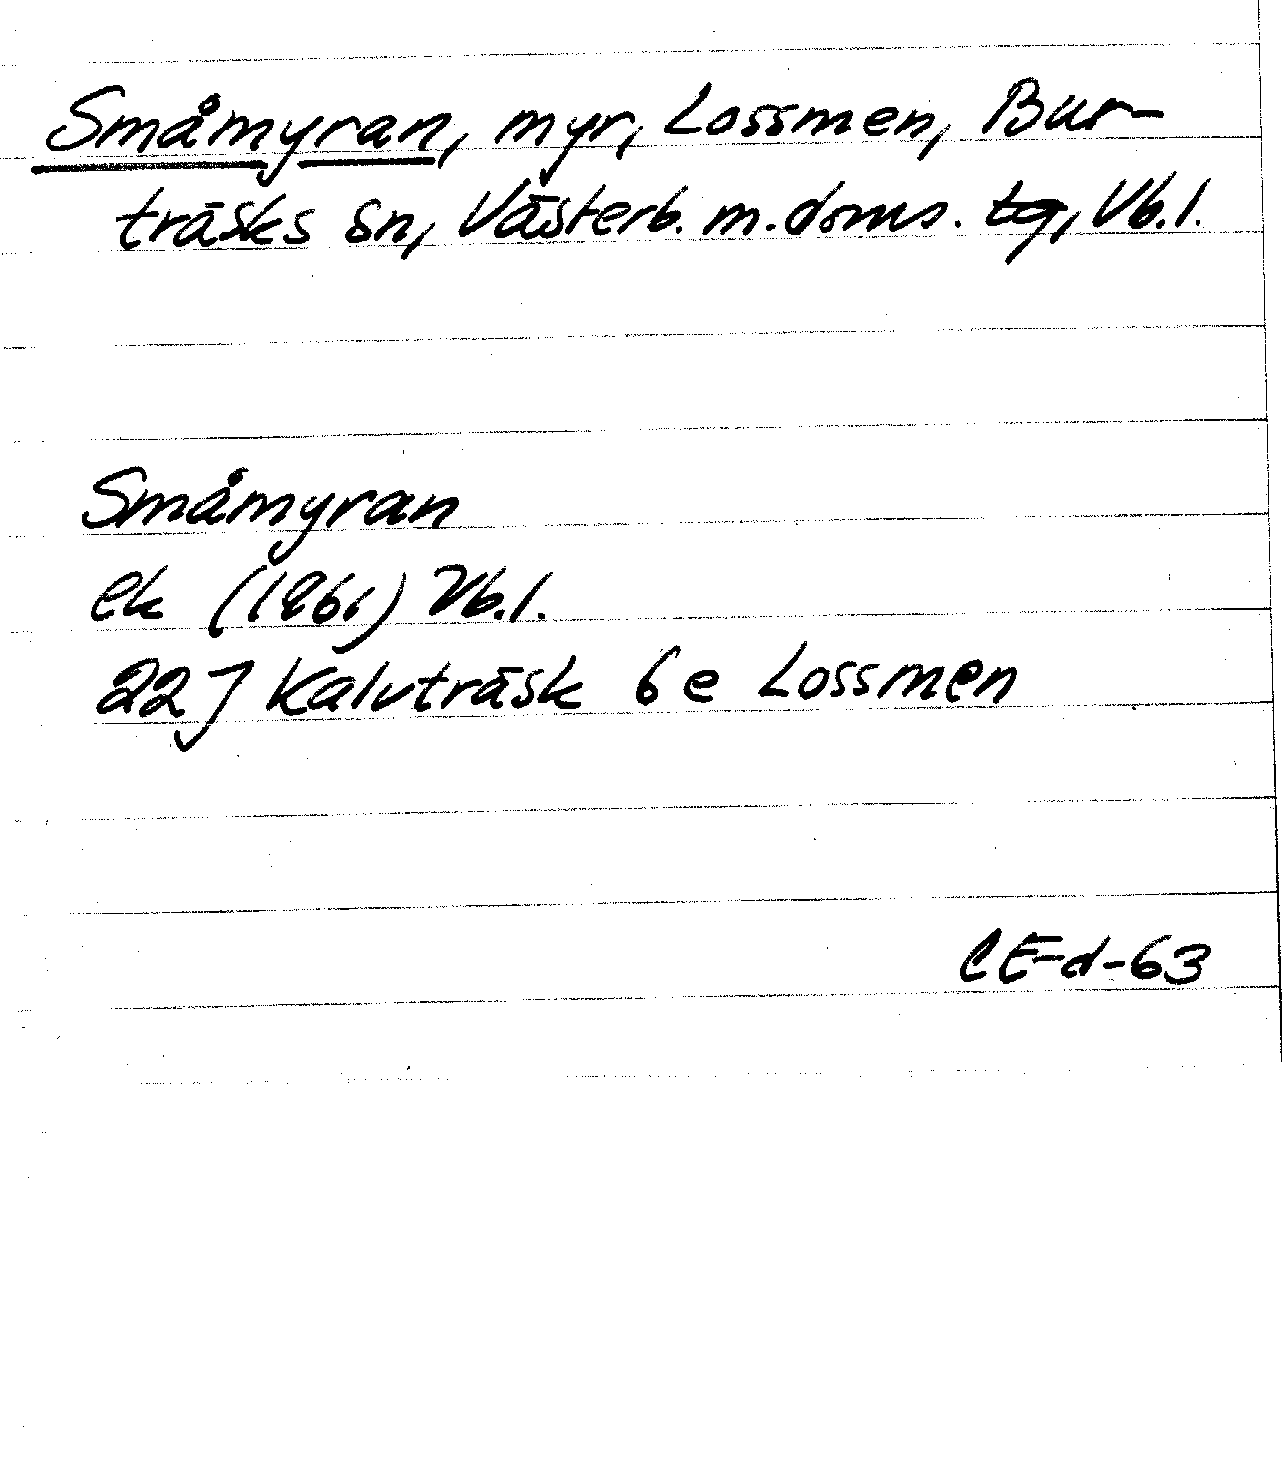 Småmyran, myr, Lossmen, Bur-
träsks sn, Västerb. m. doms. tg, Vb.l.
Småmyran
ek (1961) Vb.l.
22 J Kalvträsk 6e Lossmen
CE-d-63